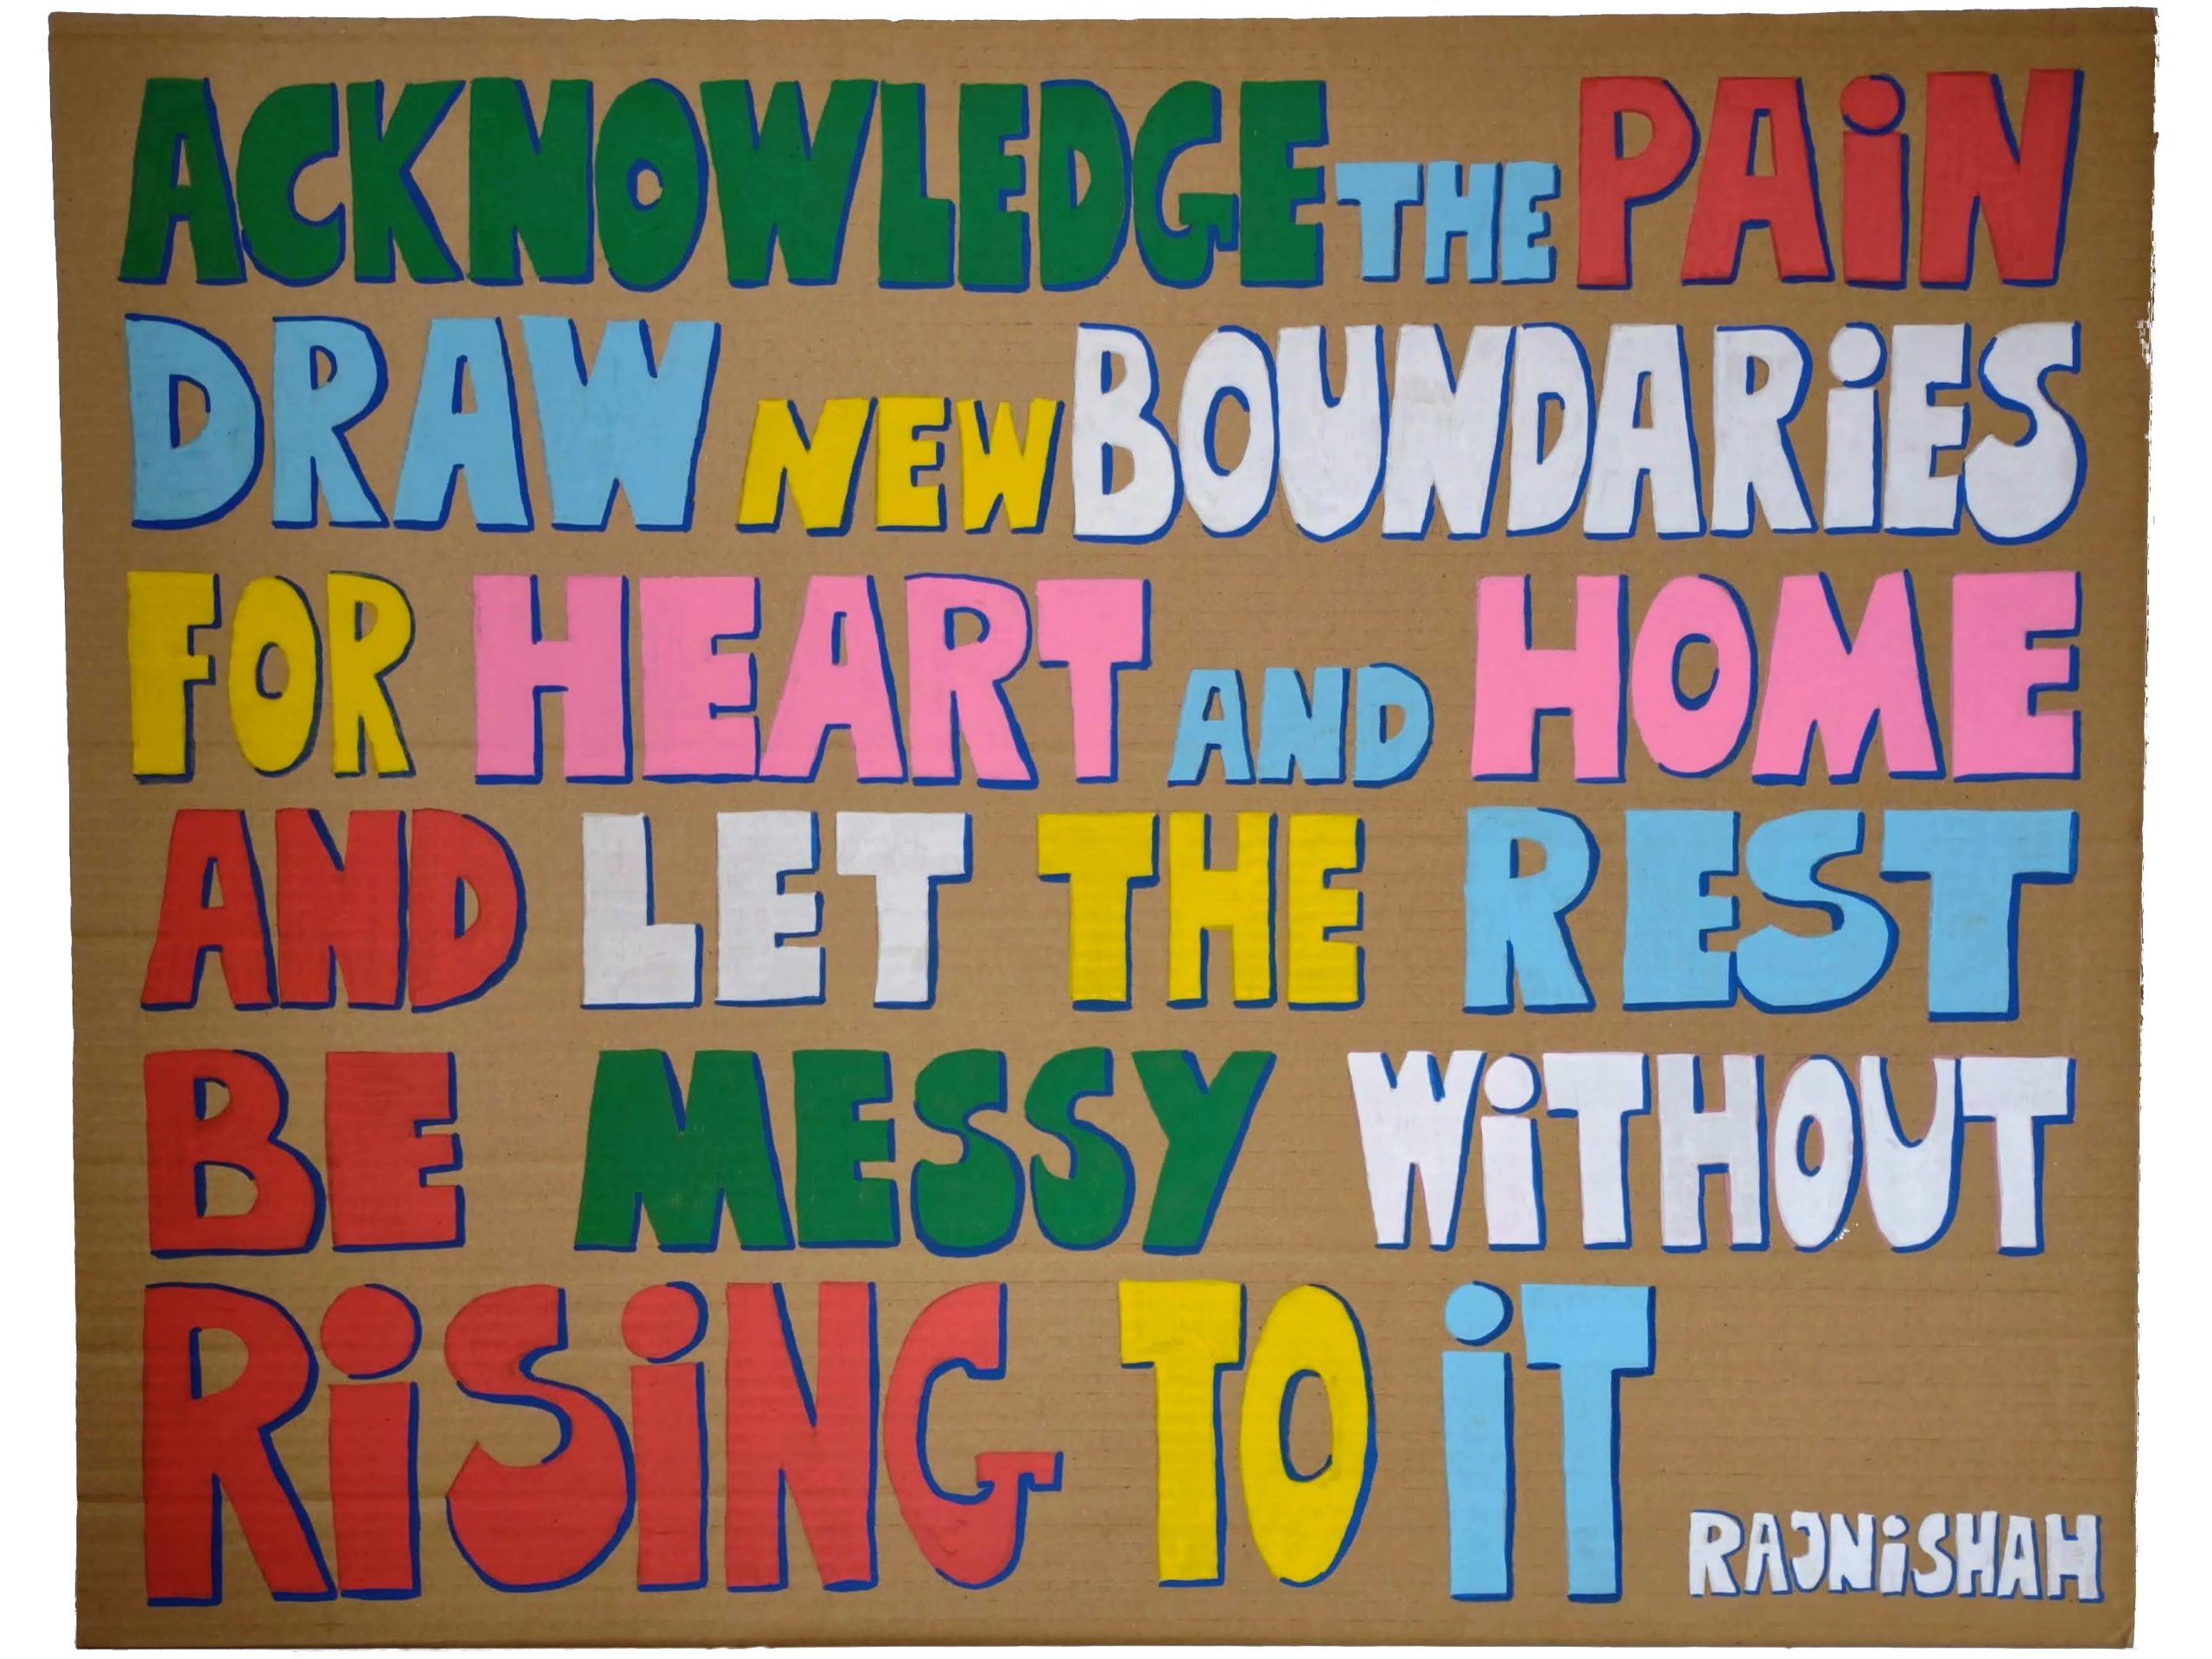 ACKNOWLEDGE THE PAiN
DRAW NEW BOUNDARiES
FOR HEART AND HOME
AND LET THE REST
BE MESSY WiTHOUT
RiSiNG TO iT
RAJNiSHAH